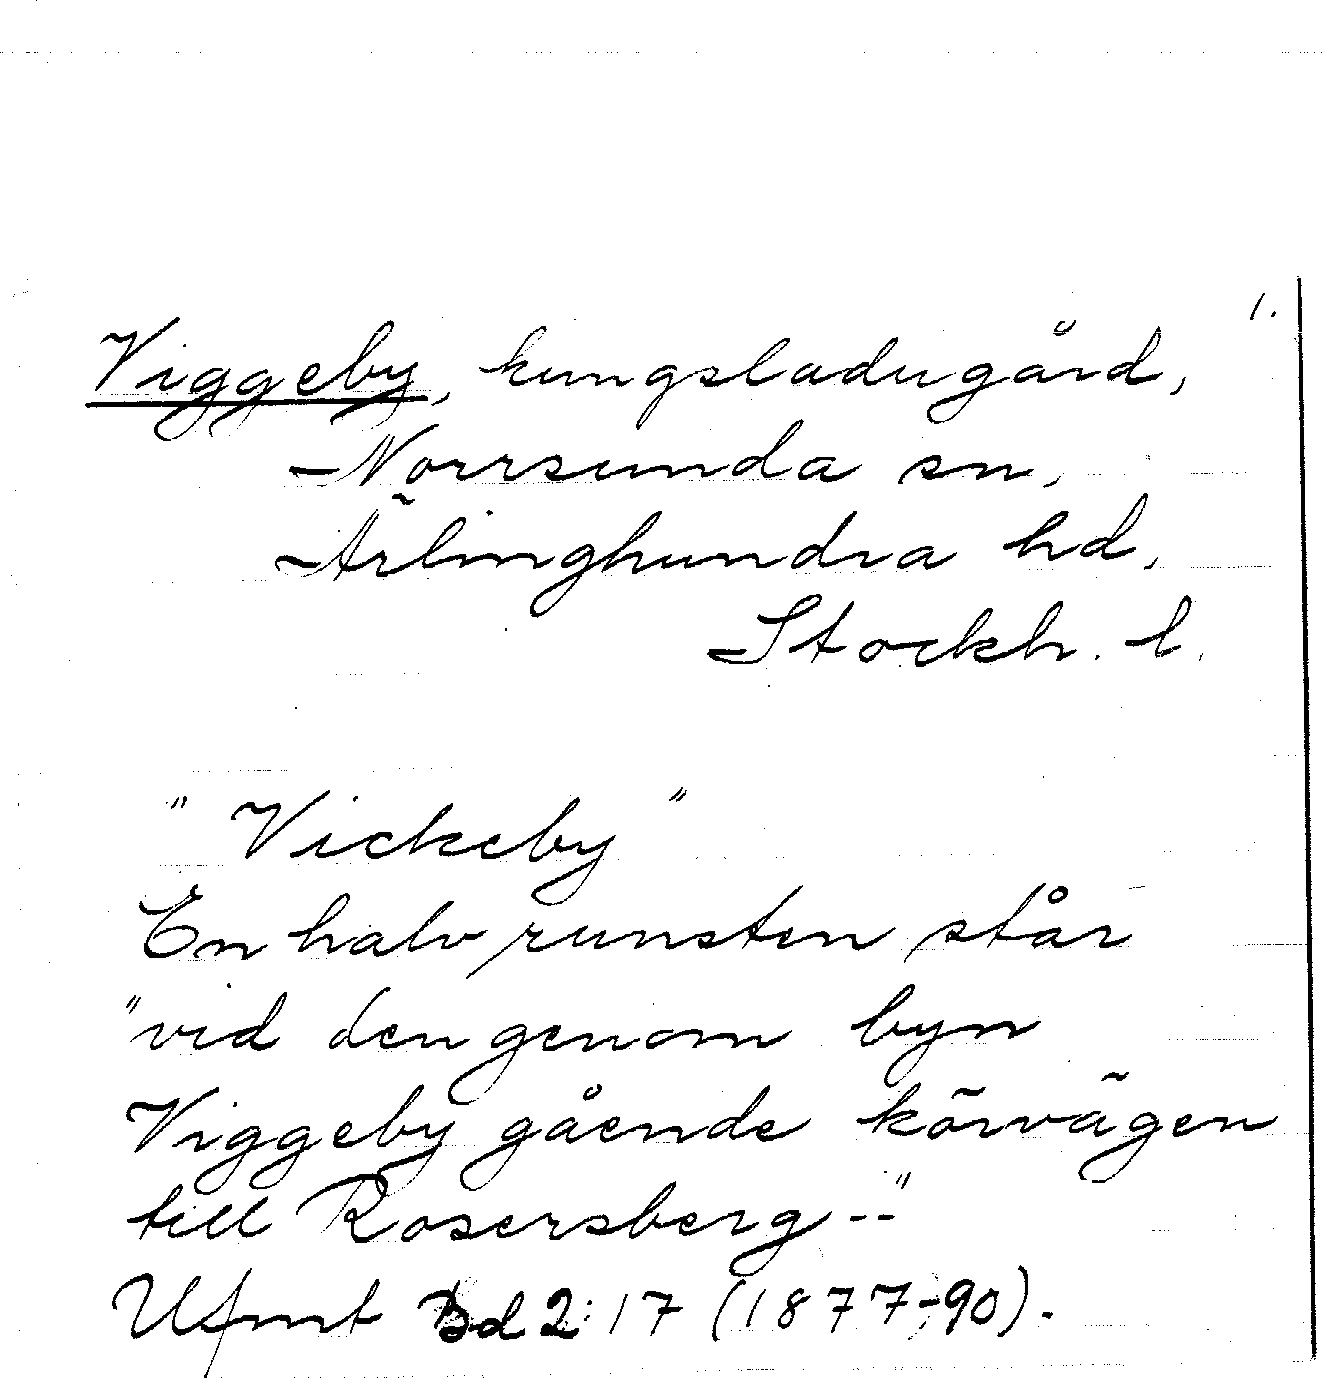 1.
Viggeby, kungsladugård,
Norrsunda sn,
Ärlinghundra hd,
Stockh. l.
"Vickeby"
En halv runsten står
"vid den genom byn
Viggeby gående körvägen
till Rosersberg --"
Ufmt Bd 2:17 (1877-90).